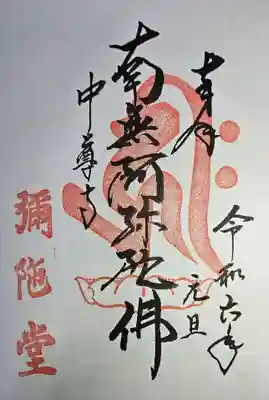 奉拝
令和六年
元旦
南無阿弥陀佛
中尊寺
彌陀堂